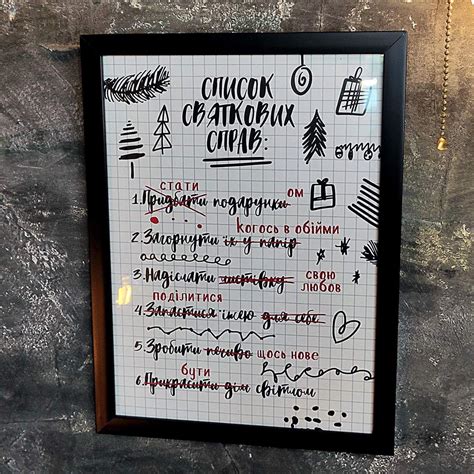 СПИСОК
СВЯТКОВИХ
СПРАВ:
стати ом
1. Придбати подарунки
когось в обійми
2. Загорнути їх у папір
3. Надіслати листівку свою
любов
поділитися
4. Запастися їжею для себе
5. Зробити печиво щось нове
бути
6. Прикрасити дім світлом